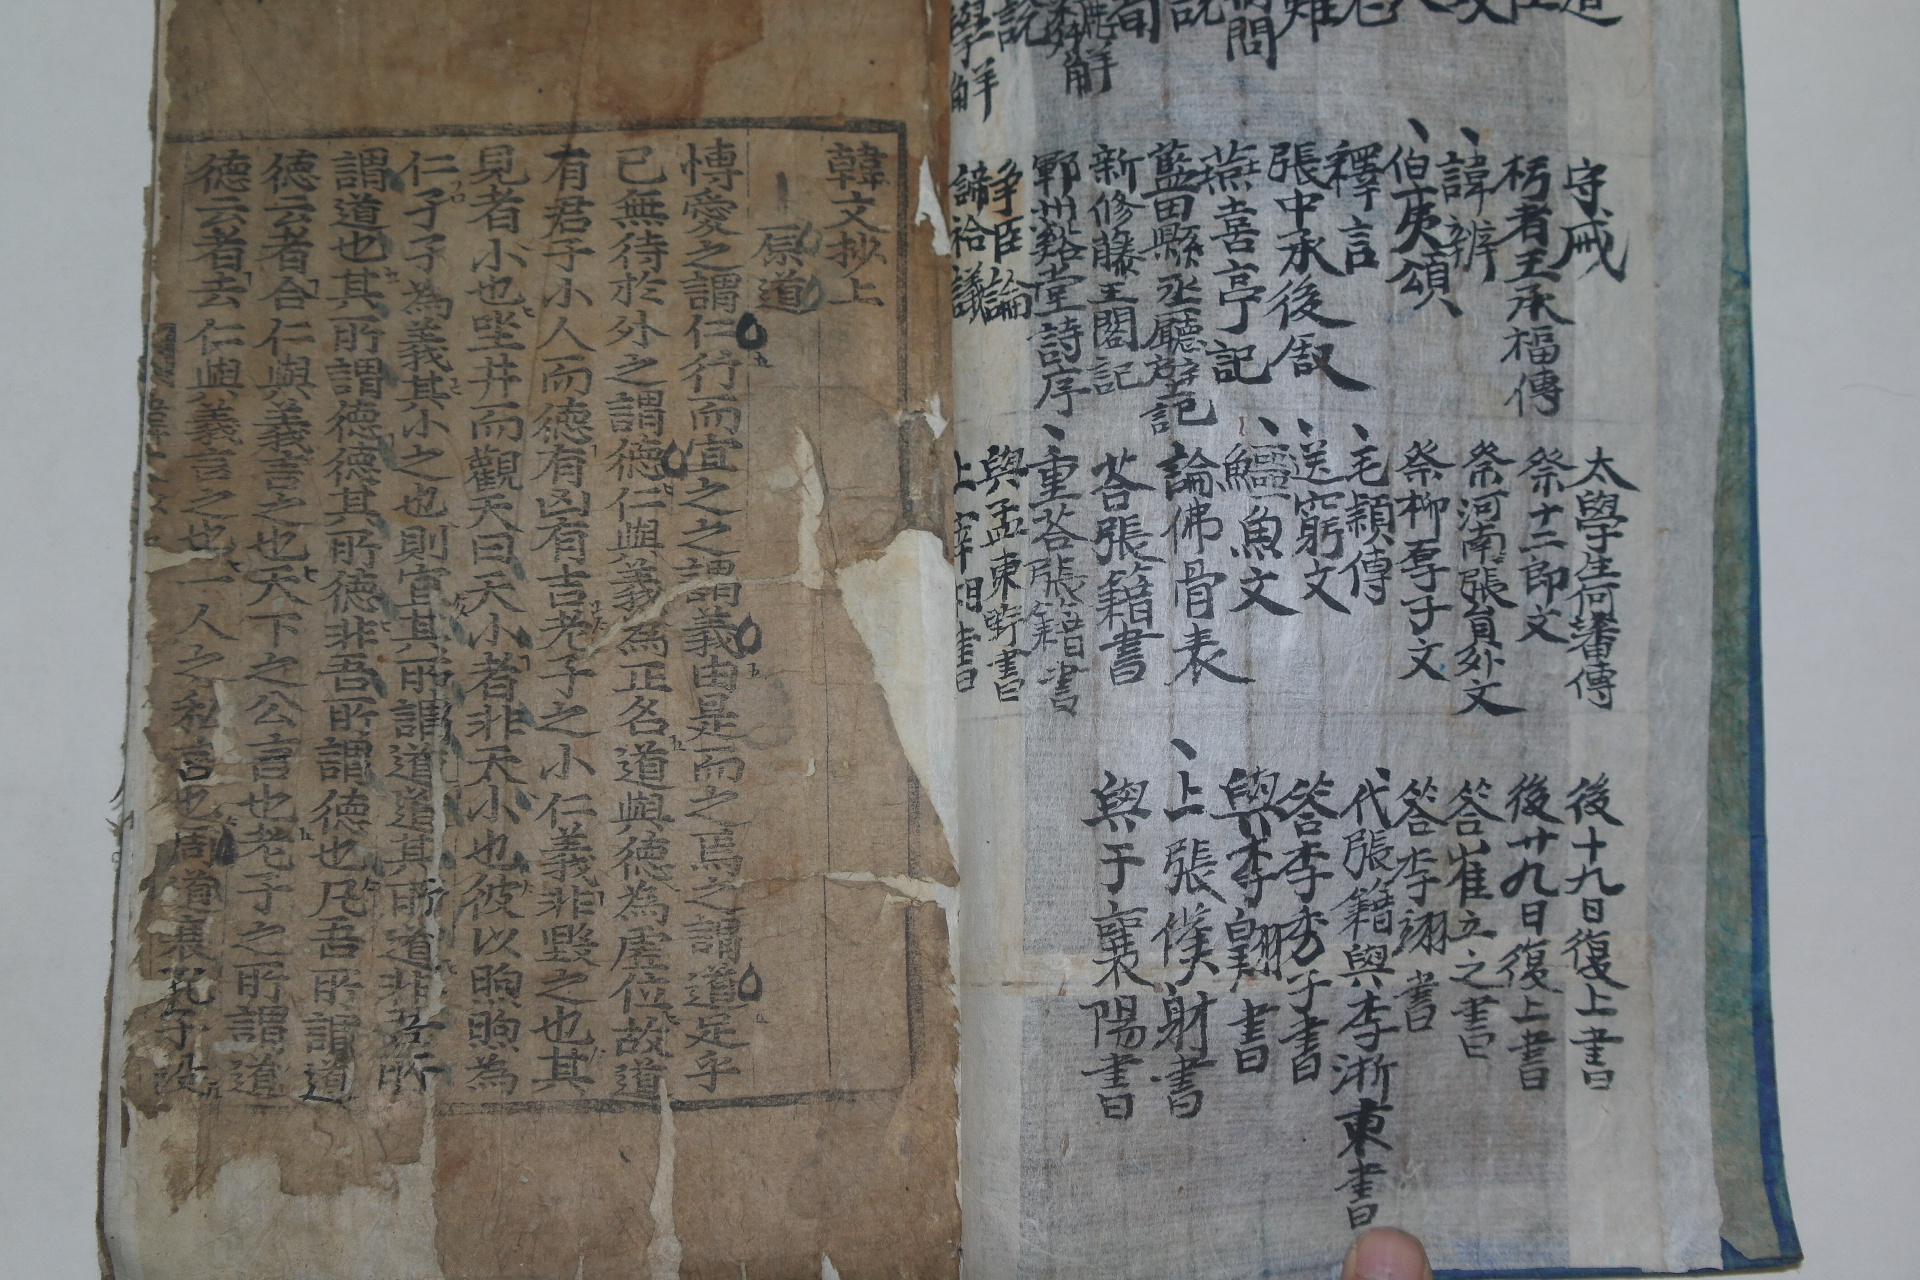 守戒
杇者王承福傳
諱辨
伯夷頌
釋言
張中承後叙
燕喜亭記
藍田縣丞廳壁記
新修藤王閣記
鄆州谿堂詩序
爭臣論
禘祫議
太學生何蕃傳
祭十二郎文
祭河南張員外文
祭柳厚子文
毛穎傳
送窮文
鱷魚文
論佛骨表
答張籍書
重答張籍書
與孟東野書
上宰相書
後十九日復上書
後廿九日復上書
答崔立之書
答李翊書
代張籍與李浙東書
答李秀子書
與李翱書
上張僕射書
與于襄陽書
韓文抄上
原道
愽愛之謂仁行而宜之之謂義由是而之焉之謂道足乎
已無待於外之謂德仁與義為正名道與德為虛位故道
有君子小人而德有凶有吉老子之小仁義非毀之也其
見者小也坐井而觀天曰天小者非天小也彼以煦煦為
仁孑孑為義其小之也則宜其所謂道道其所道非吾所
謂道也其所謂德德其所德非吾所謂德也凡吾所謂道
德云者合仁與義言之也天下之公言也老子之所謂道
德云者去仁與義言之也一人之私言也周道衰孔子沒